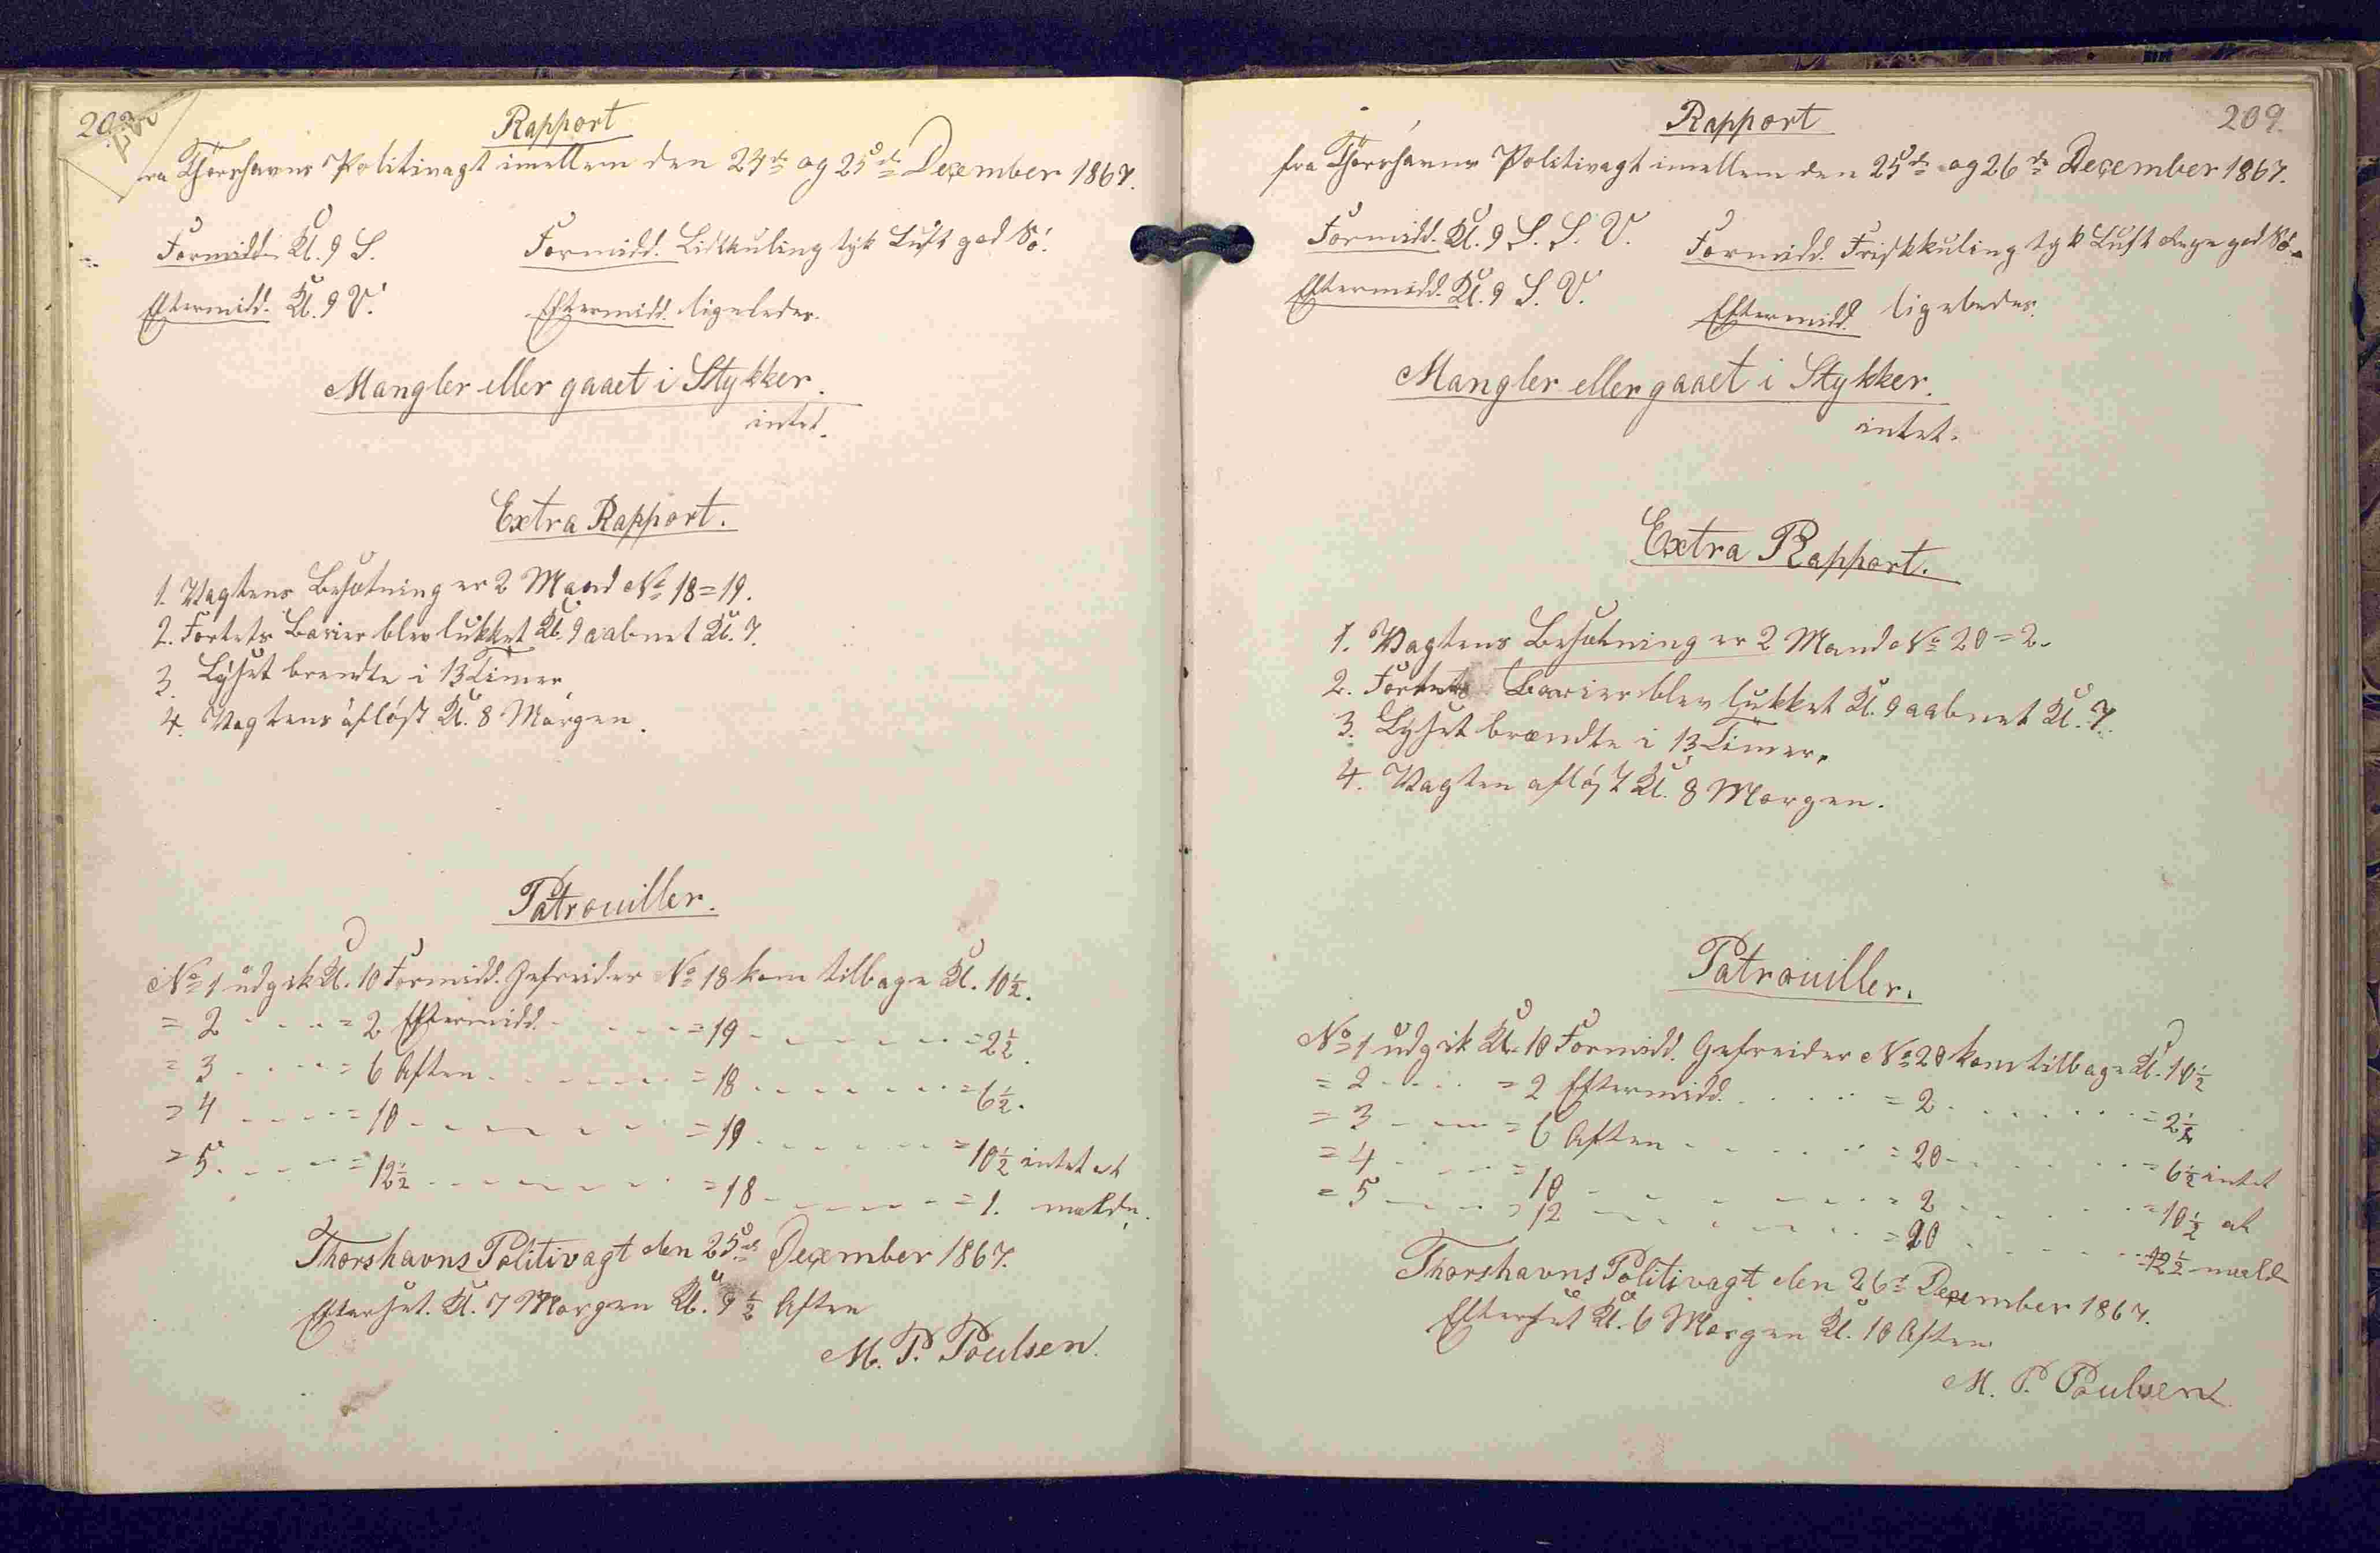 Rapport
fra Thorshavns Politivagt imellem den 24de og 25de December 1867.
Formidd. Kl. 9 S.
Formidd. Lidt kuling tyk Luft god Sö.
Eftermidd. Kl. 9 V.
Eftermidd. ligeledes.
Mangler eller gaaet i Stykker.
intet.
Extra Rapport.
1. Vagtens Besætning er 2 Mand No 18=19.
2. Fortets Barier blev lukket Kl. 9 aabnet Kl. 7.
3. Lyset brendte i 13 Timer.
4. Vagtens aflöst Kl. 8 Morgen.
Patrouiller.
No 1 udgik Kl. 10 Formidd. Gefreider No 18 kom tilbage Kl. 10½.
= 2 - - - = 2 Eftermidd. - - - = 19 - - - - - = 2½.
= 3 - - - = 6 Aften - - - - - = 18 - - - - - = 6½.
= 4 - - - = 10 - - - - - - = 19 - - - - - = 10½ intet at
= 5 - - - = 12½ - - - - - - = 18 - - - - - = 1. melde.
Thorshavns Politivagt den 25de December 1867.
Efterset. Kl. 7 Morgen Kl. 9½ Aften
M. P. Poulsen.
209.
Rapport
fra Thorshavns Politivagt imellem den 25de og 26de December 1867.
Formidd. Kl. 9 S. S. V.
Formidd. Frisk kuling tyk Luft Regn god Sö.
Eftermidd. Kl. 9 S. V.
Eftermidd. ligeledes.
Mangler eller gaaet i Stykker.
intet.
Extra Rapport.
1. Vagtens Besætning er 2 Mand No 20=2.
2. Fortets Barier blev lukket Kl. 9 aabnet Kl. 7.
3. Lyset brændte i 13 Timer.
4. Vagten aflöst Kl. 8 Morgen.
Patrouiller.
No 1 udgik Kl. 10 Formidd. Gefreider No 20 kom tilbage Kl. 10½
= 2 - - - = 2 Eftermidd. - - - = 2 - - - - - = 2½
= 3 - - - = 6 Aften - - - - = 20 - - - - - = 6½ intet
= 4 - - - = 10 - - - - - - = 2 - - - - - = 10½ at
= 5 - - - = 12 - - - - - - = 20 - - - - - 12½ meld
Thorshavns Politivagt den 26d December 1867.
Efterset Kl. 6 Morgen Kl. 10 Aften
M. P. Poulsen